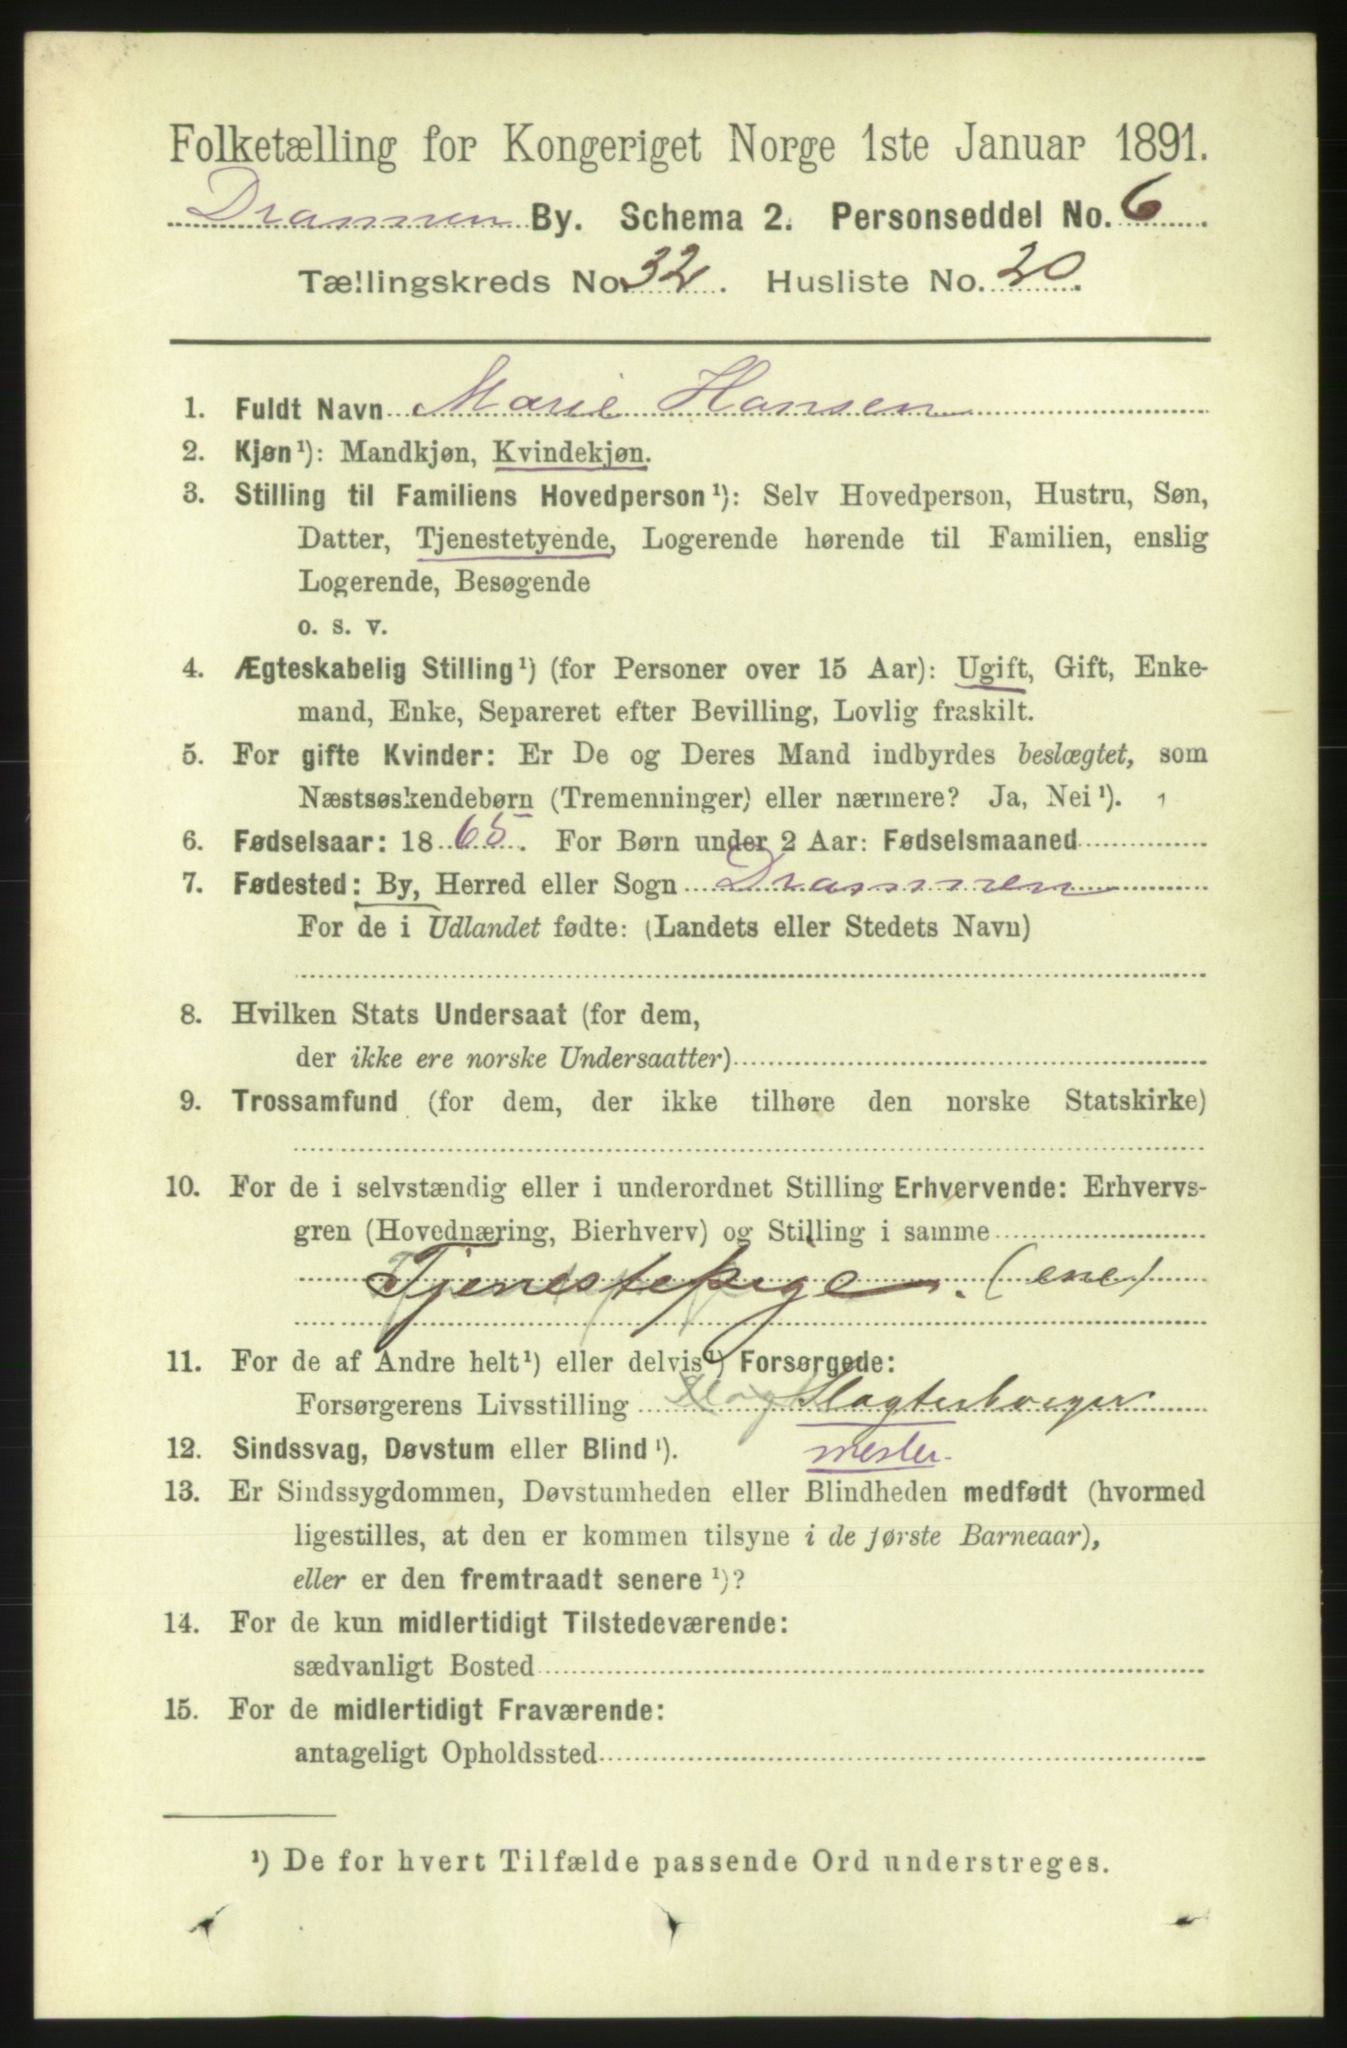 Folketælling for Kongeriget Norge 1ste Januar 1891.
Drammen By. Schema 2. Personseddel No. 6
Tællingskreds No. 32. Husliste No. 20.
1. Fuldt Navn Marie Hansen
2. Kjøn¹): Mandkjøn, Kvindekjøn.
3. Stilling til Familiens Hovedperson¹): Selv Hovedperson, Hustru, Søn,
Datter, Tjenestetyende, Logerende hørende til Familien, enslig
Logerende, Besøgende
o. s. v.
4. Ægteskabelig Stilling¹) (for Personer over 15 Aar): Ugift, Gift, Enke-
mand, Enke, Separeret efter Bevilling, Lovlig fraskilt.
5. For gifte Kvinder: Er De og Deres Mand indbyrdes beslægtet, som
Næstsøskendebørn (Tremenninger) eller nærmere? Ja, Nei¹).
6. Fødselsaar: 1865. For Børn under 2 Aar: Fødselsmaaned
7. Fødested: By, Herred eller Sogn Drammen
For de i Udlandet fødte: (Landets eller Stedets Navn)
8. Hvilken Stats Undersaat (for dem,
der ikke ere norske Undersaatter)
9. Trossamfund (for dem, der ikke tilhøre den norske Statskirke)
10. For de i selvstændig eller i underordnet Stilling Erhvervende: Erhvervs-
gren (Hovednæring, Bierhverv) og Stilling i samme
Tjenestepige. (ene)
11. For de af Andre helt¹) eller delvis¹) Forsørgede:
Forsørgerens Livsstilling Slagterborger
12. Sindssvag, Døvstum eller Blind¹). mester.
13. Er Sindssygdommen, Døvstumheden eller Blindheden medfødt (hvormed
ligestilles, at den er kommen tilsyne i de første Barneaar),
eller er den fremtraadt senere¹)?
14. For de kun midlertidigt Tilstedeværende:
sædvanligt Bosted
15. For de midlertidigt Fraværende:
antageligt Opholdssted
¹) De for hvert Tilfælde passende Ord understreges.